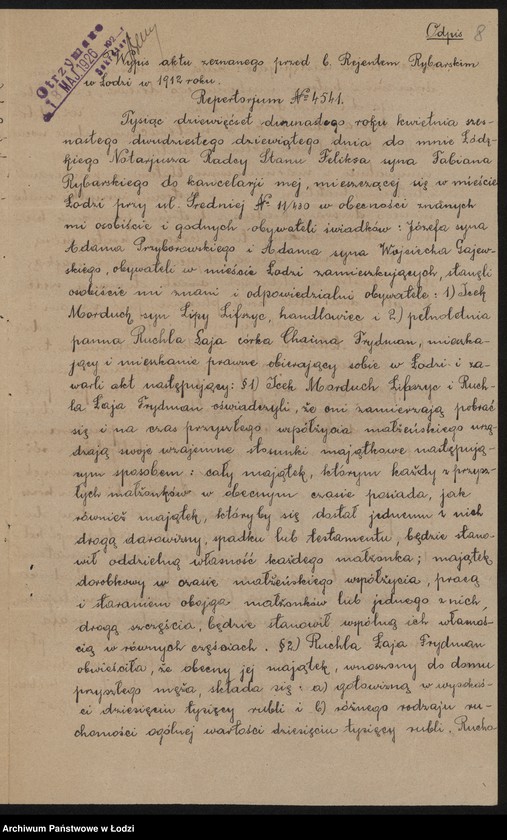 Odpis 8
Otrzymano
18 MAJ. 1926
Wypis aktu zeznanego przed b. Rejentem Rybarskim
w Łodzi w 1912 roku.
Repertorjum № 4541.
Tysiąc dziewięćset dwunastego roku kwietnia szes-
nastego dwudziestego dziewiątego dnia do mnie Łódz-
kiego Notarjusza Radcy Stanu Feliksa syna Fabiana
Rybarskiego do kancelarji mej, mieszczącej się w mieście
Łodzi przy ul. Średniej № 11/430 w obecności znanych
mi osobiście i godnych obywateli świadków: Józefa syna
Adama Przyborowskiego i Adama syna Wojciecha Gajew-
skiego, obywateli w mieście Łodzi zamieszkujących, stanęli
osobiście mi znani i odpowiedzialni obywatele: 1) Icek
Morduch syn Lipy Lifszyc, handlowiec i 2) pełnoletnia
panna Ruchla Łaja córka Chaima Frydman, mieszka-
jący i mieszkanie prawne obierający sobie w Łodzi i za-
warli akt następujący: §1) Icek Morduch Lifszyc i Ruch-
la Łaja Frydman oświadczyli, że oni zamierzają pobrać
się i na czas przyszłego współżycia małżeńskiego urzą-
dzają swoje wzajemne stosunki majątkowe następują-
cym sposobem: cały majątek, którym każdy z przysz-
łych małżonków w obecnym czasie posiada, jak
również majątek, któryby się dostał jednemu z nich
drogą darowizny, spadku lub testamentu, będzie stano-
wił oddzielną własność każdego małżonka; majątek
dorobkowy w czasie małżeńskiego współżycia, pracą
i staraniem obojga małżonków lub jednego z nich,
drogą szczęścia, będzie stanowił wspólną ich własnoś-
cią w równych częściach. §2) Ruchla Łaja Frydman
obwieściła, że obecny jej majątek, wnoszony do domu
przyszłego męża, składa się: a) gotowizną w wysokoś-
ci dziesięciu tysięcy rubli i b) różnego rodzaju ru-
chomości ogólnej wartości dziesięciu tysięcy rubli. Rucho-
Archiwum Państwowe w Łodzi